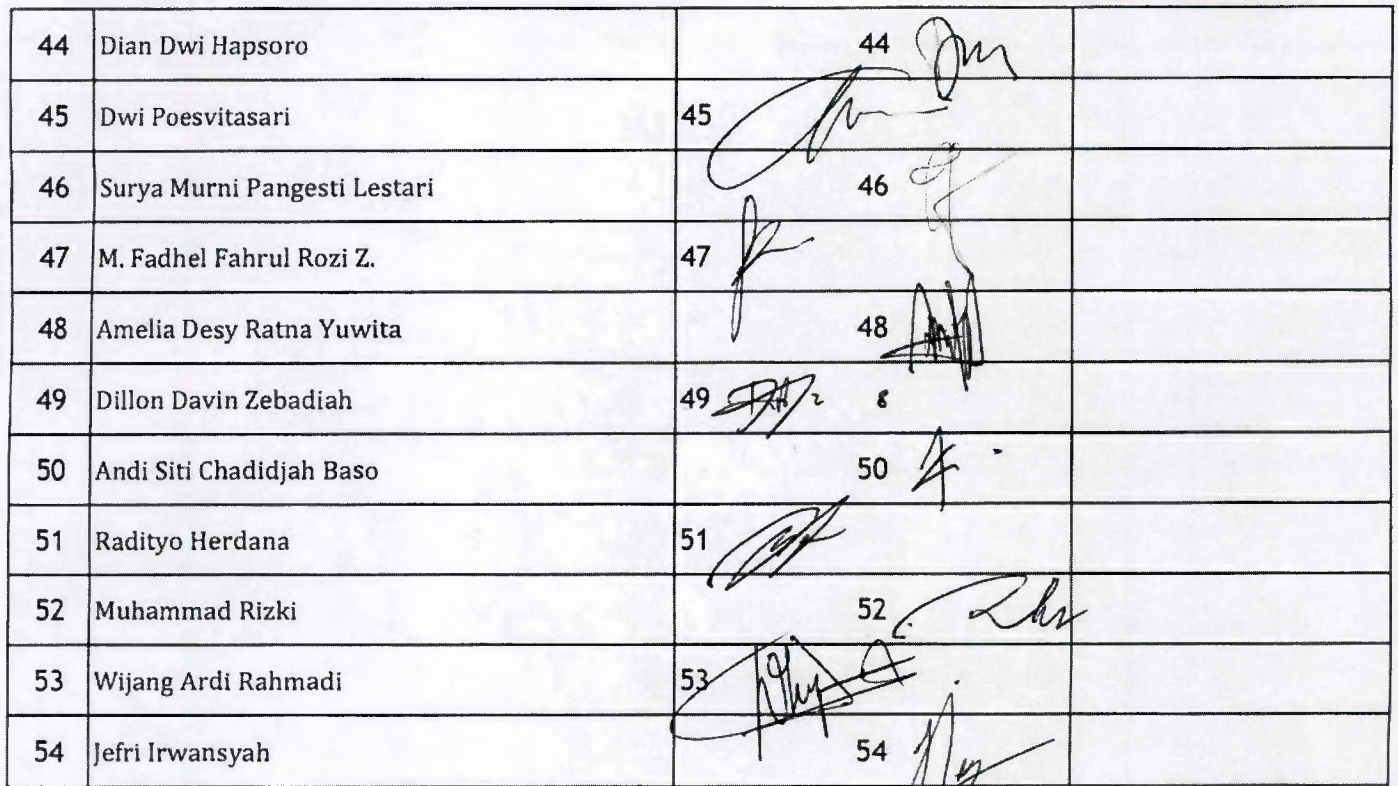 44 Dian Dwi Hapsoro 44
45 Dwi Poesvitasari 45
46 Surya Murni Pangesti Lestari 46
47 M. Fadhel Fahrul Rozi Z. 47
48 Amelia Desy Ratna Yuwita 48
49 Dillon Davin Zebadiah 49 8
50 Andi Siti Chadidjah Baso 50
51 Radityo Herdana 51
52 Muhammad Rizki 52
53 Wijang Ardi Rahmadi 53
54 Jefri Irwansyah 54